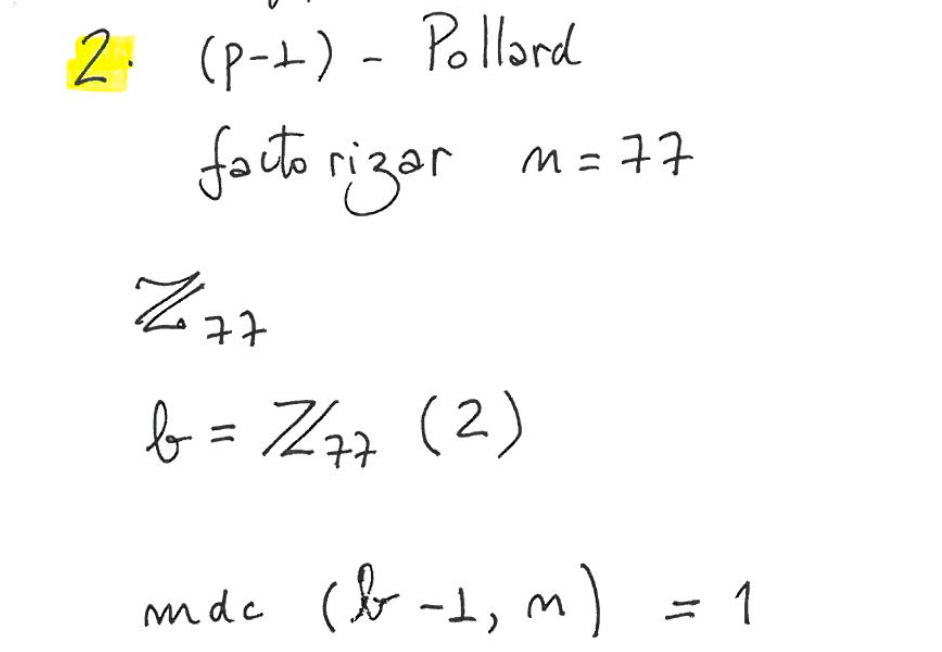 2. (p-1) - Pollard
factorizar n = 77
ℤ77
b = ℤ77 (2)
mdc (b-1, n) = 1